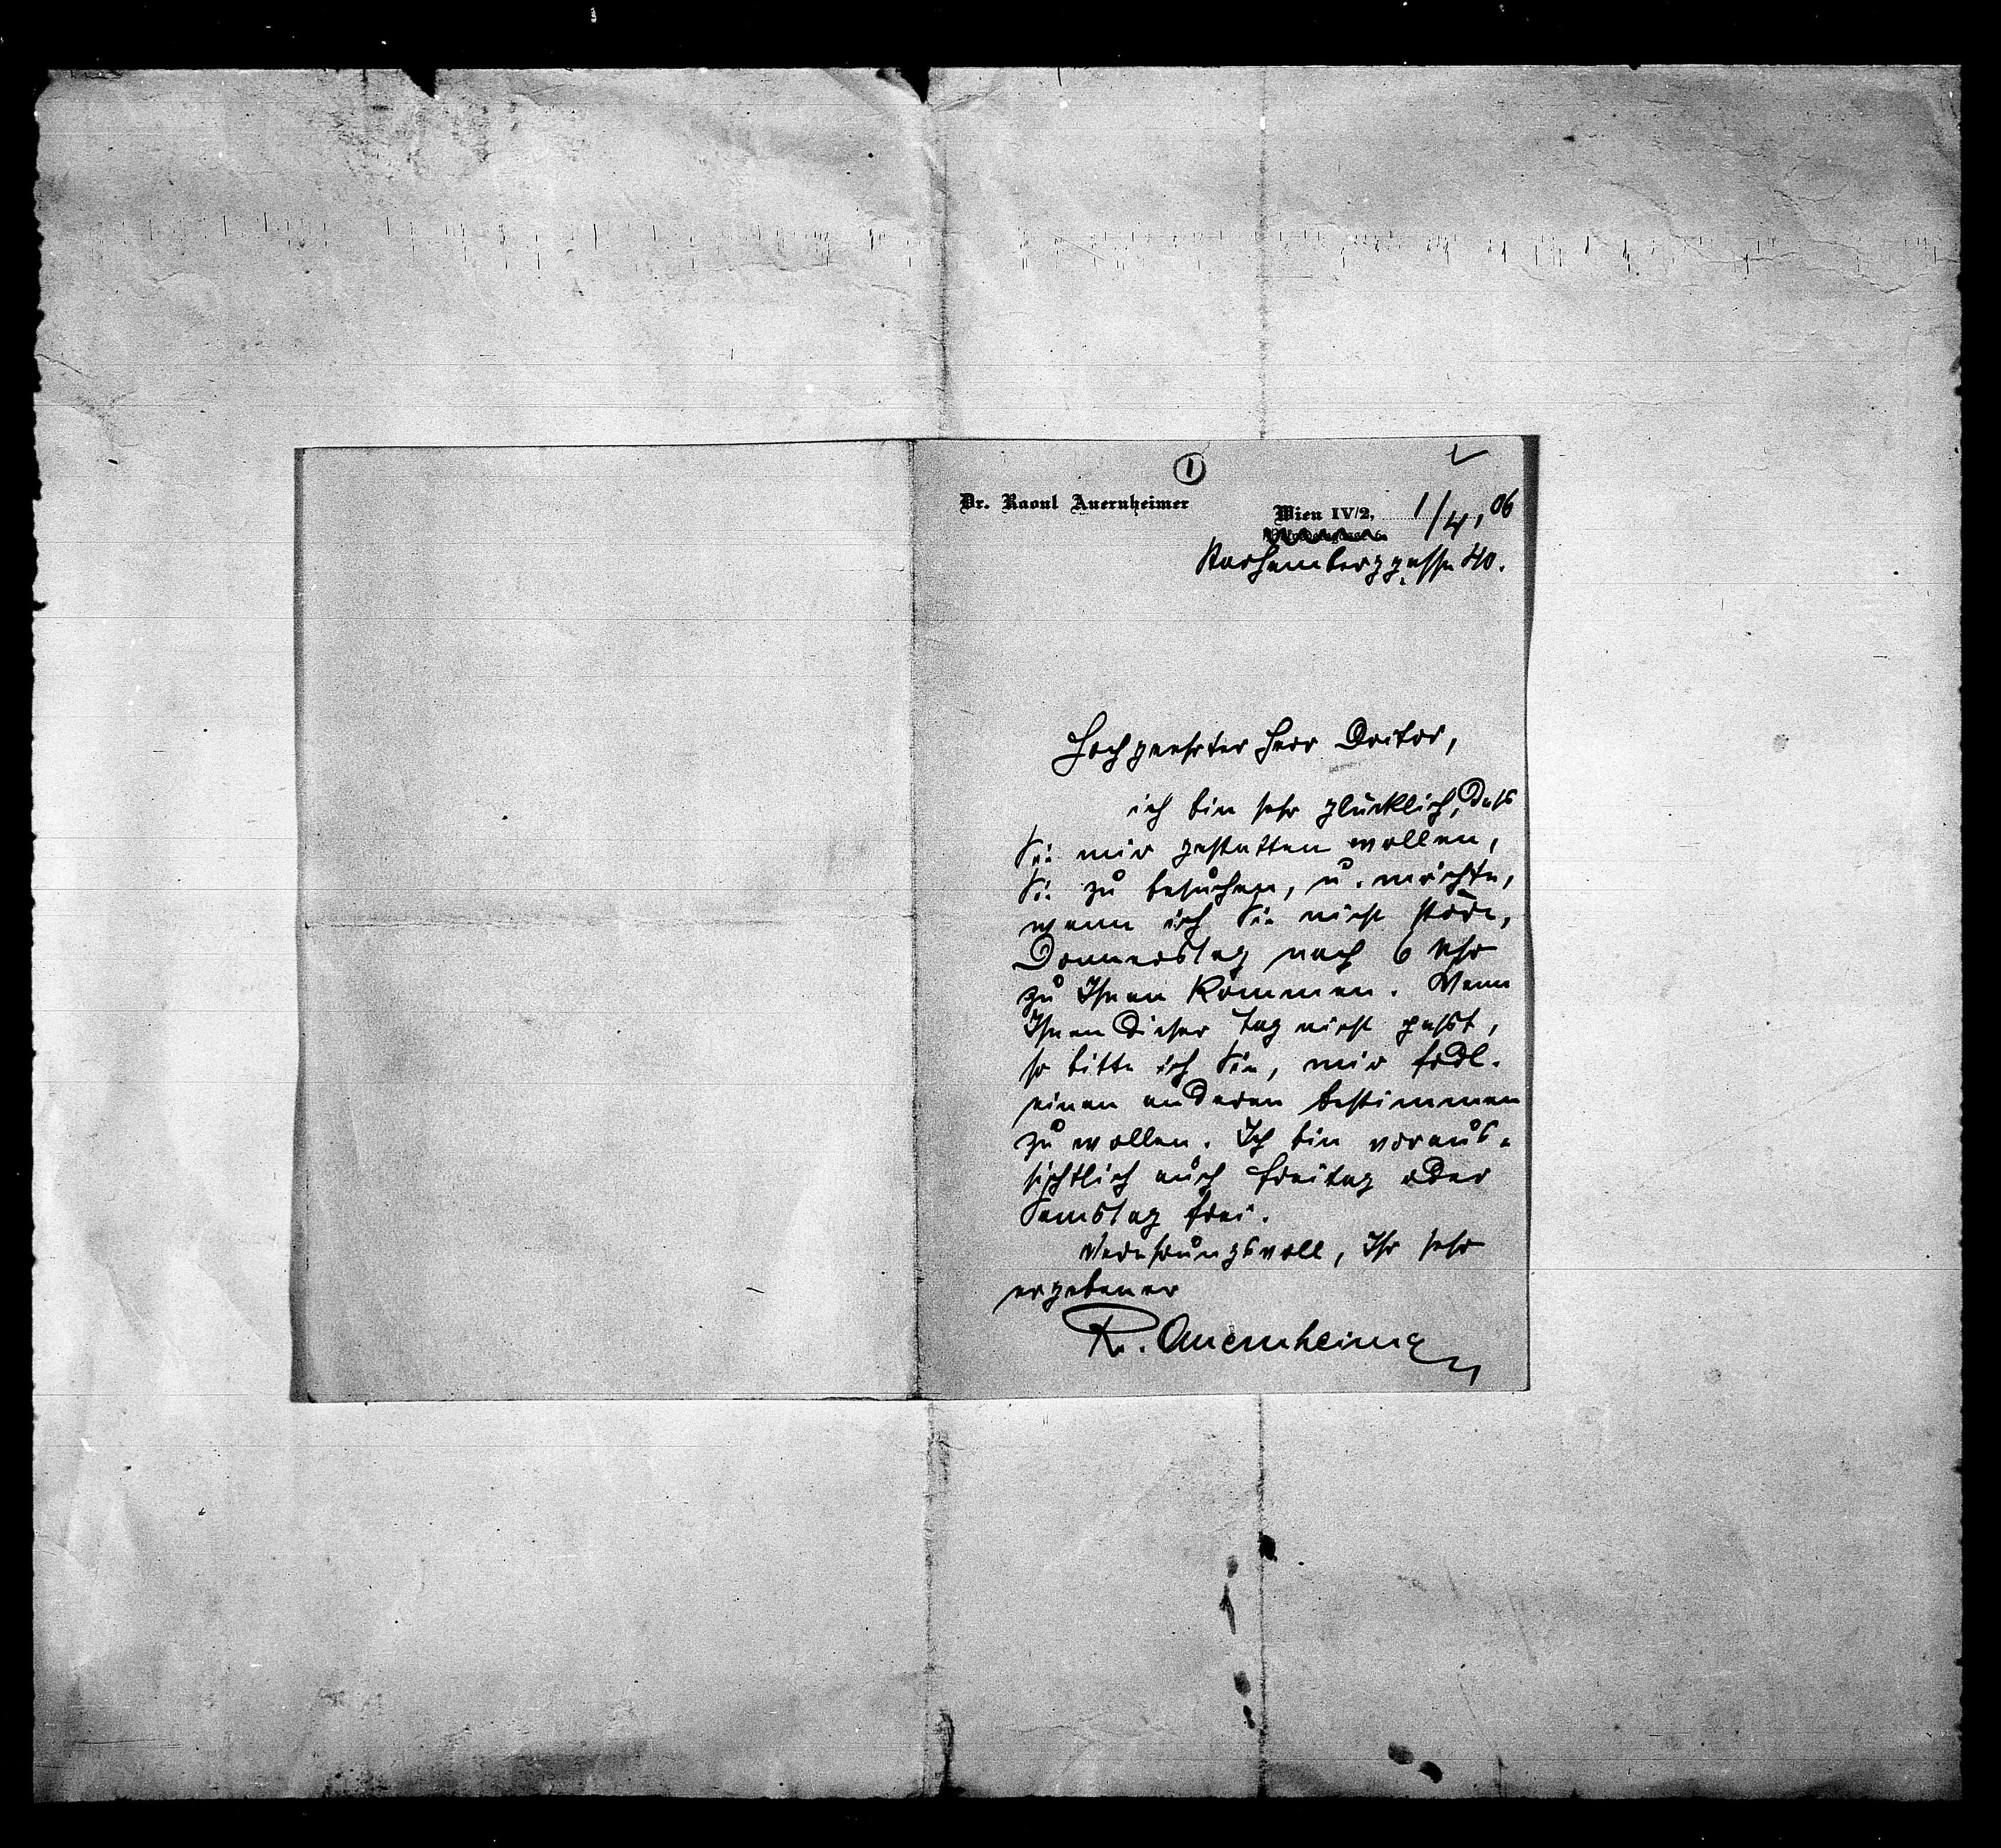 ①
Dr. Raoul Auernheimer
Wien IV/2, 1/4, 06
Starhemberggasse 40.
Hochgeehrter Herr Doktor,
ich bin sehr glücklich, daß
Sie mir gestatten wollen,
Sie zu besuchen, u. möchte,
wenn ich Sie nicht störe,
Donnerstag nach 6 Uhr
zu Ihnen kommen. Wenn
Ihnen dieser Tag nicht paßt,
so bitte ich Sie, mir frdl.
einen anderen bestimmen
zu wollen. Ich bin voraus-
sichtlich auch Freitag oder
Samstag frei.
Verehrungsvoll, Ihr sehr
ergebener
R. Auernheimer